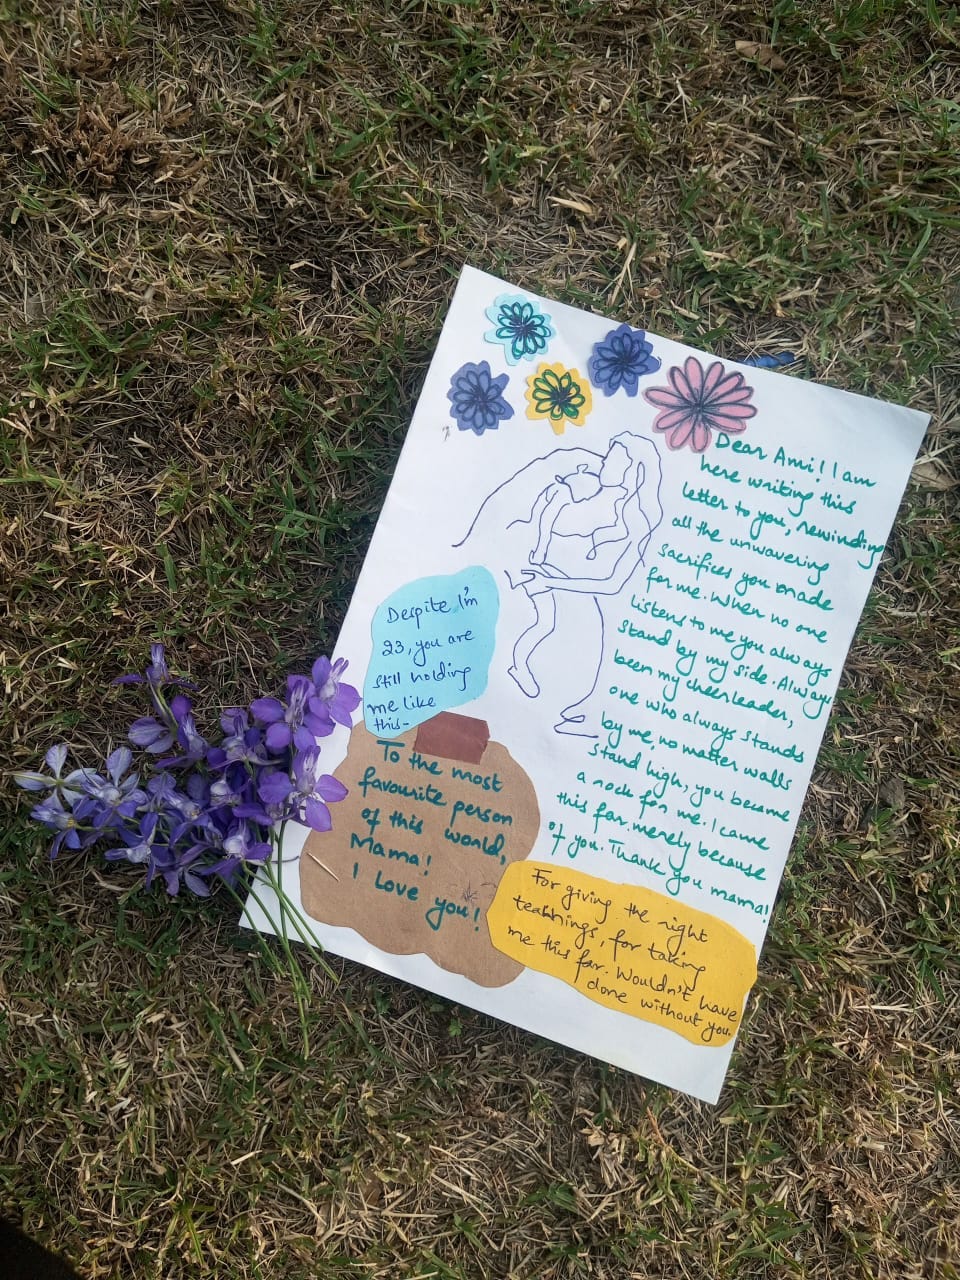 Dear Ami! I am
here writing this
letter to you, rewinding
all the unwavering
sacrifices you made
for me. When no one
listens to me you always
stand by my side. Always
been my cheerleader,
one who always stands
by me, no matter walls
stand high, you became
a rock for me. I came
this far merely because
of you. Thank you mama!
Despite I'm
23, you are
still holding
me like
this-
To the most
favourite person
of this world,
Mama!
I love you!
For giving the right
teachings, for taking
me this far. Wouldn't have
done without you.